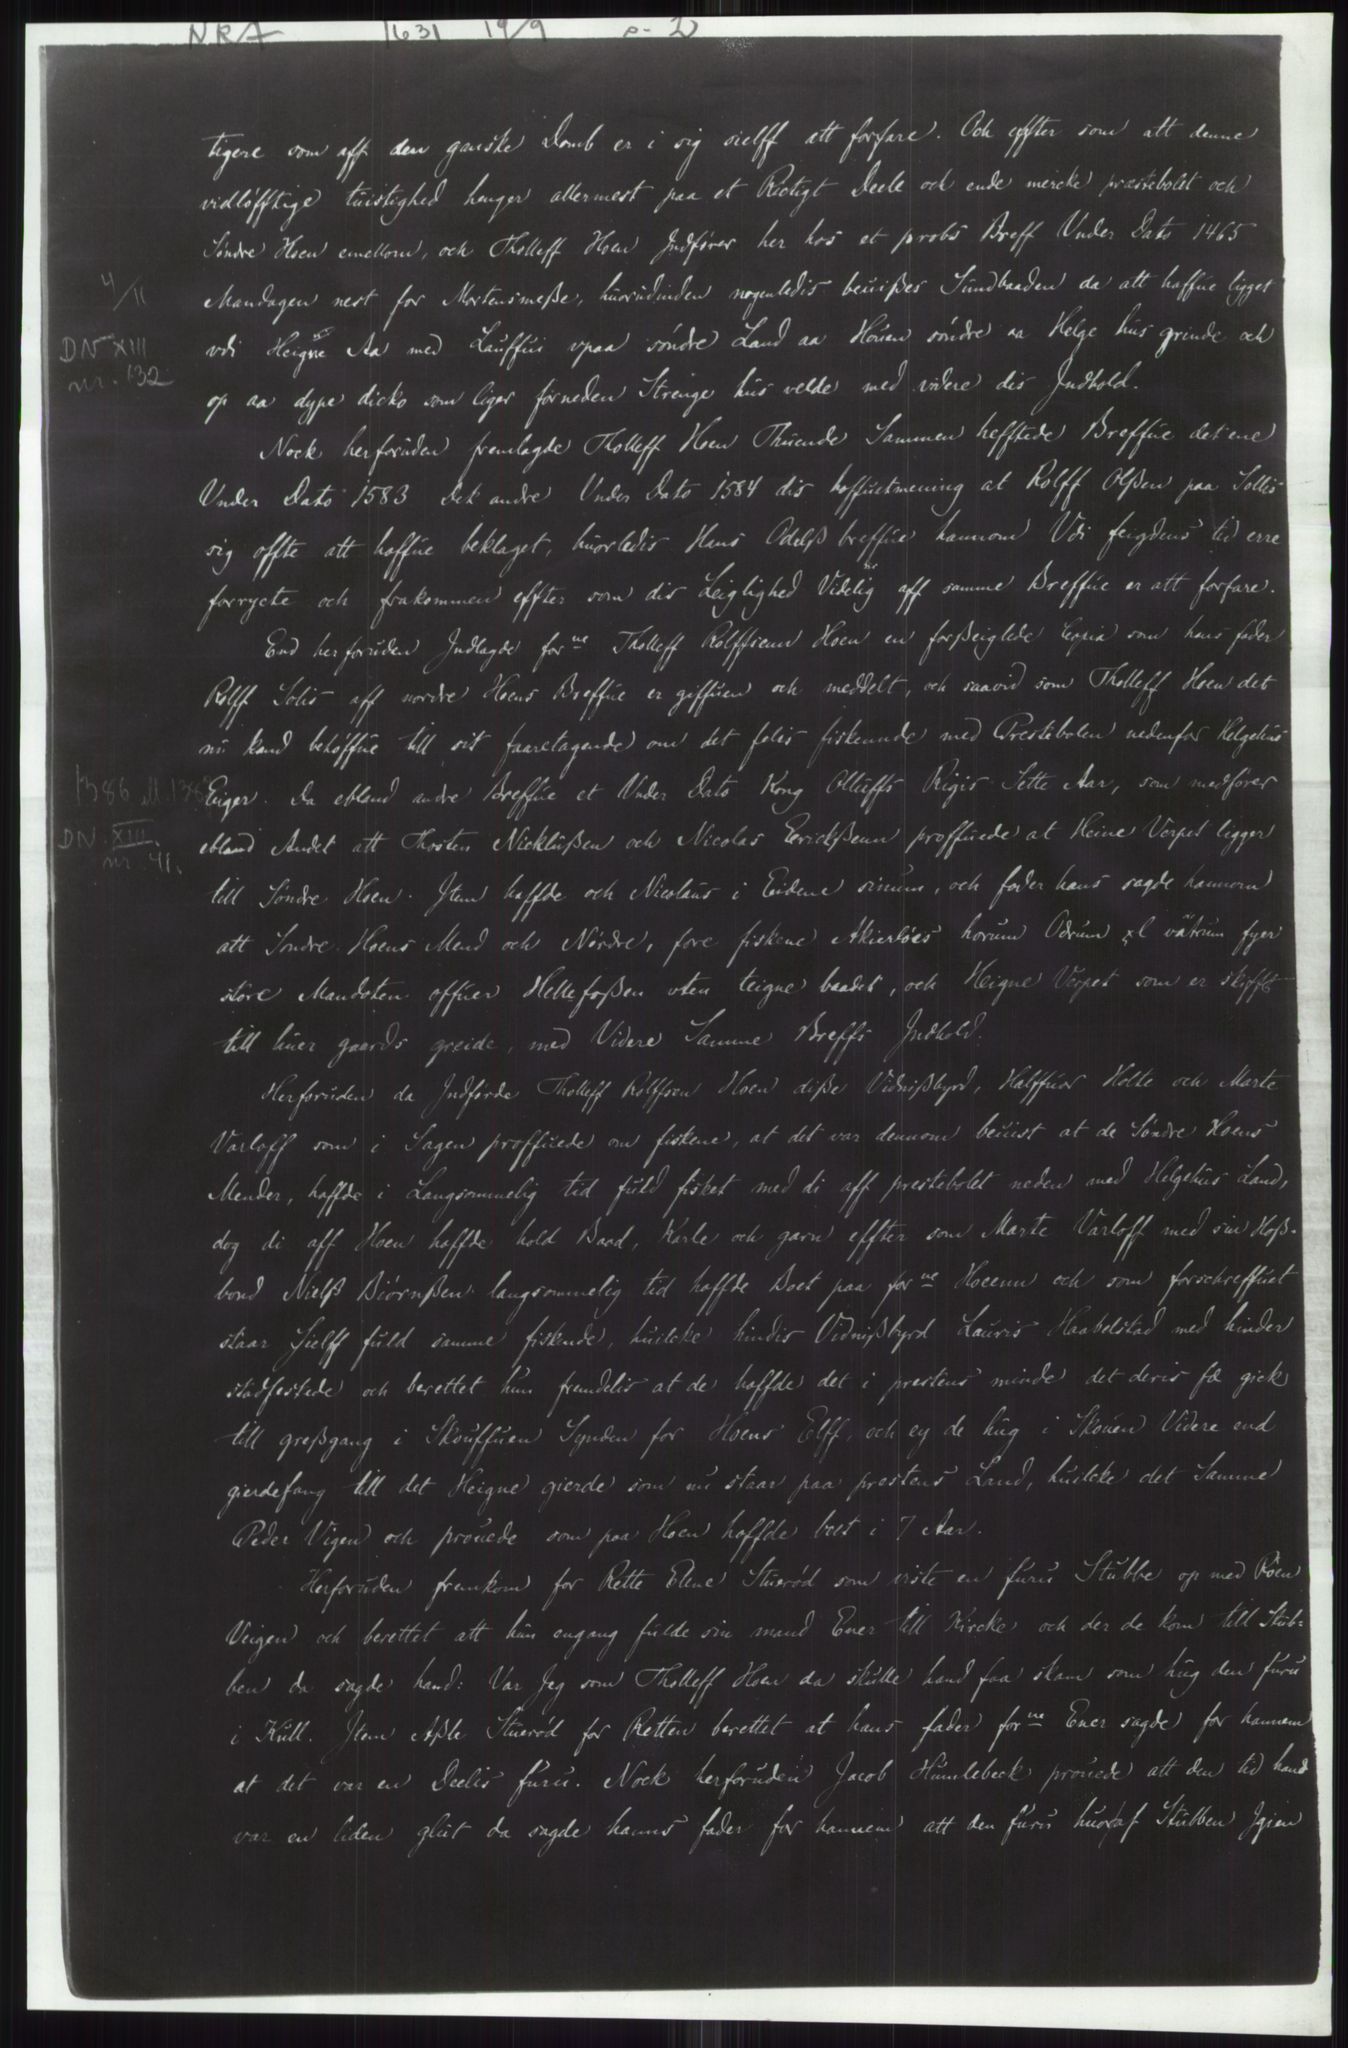 NRA 1631 19/9 s. 2
tigere som aff den ganske Domb er i sig sielff att forfare. Och effter som att denne
vidløfftige tuistighed henger allermest paa et Rictigt Deele och ende mercke præstebolet och
Søndre Hoen emellom, och Tholleff Hoen Jndfører her hos et probs Breff Vnder Dato 1465
4/11
Mandagen nest for Mortensmeße, huorudinden nogenledis beuißes Sundbaaden da att haffue ligget
DN XIII
nr. 132
vdi Heigne Aa med Lauffui vpaa søndre Land aa Houen søndre aa Helge hus grinde och
op aa dype dicko som liger forneden Strenge hus velde med videre dis Jndhold.
Nock herforuden fremlagde Tholleff Hoen Thuende Sammen hefftede Breffue det ene
Vnder Dato 1583 Det andre Vnder Dato 1584 dis hoffuetmening at Rolff Olßen paa Sollis
sig offte att haffue beklaget, huorledis Hans Odelß breffue hannom Vdi feigdens tid erre
forrycte och frakommen effter som dis Leiglighed Videlig aff samme Breffue er att forfare.
End herforuden Jndlagde forne Tholleff Rolffsenn Hoen en forßeiglede Copia som hans fader
Rolff Solis aff nordre Hoens Breffue er giffuen och meddelt, och saavid som Tholleff Hoen det
nu kand behøffue till sit foaretagende om det felis fiskeunde med Prestebolen nedenfor Helgehus
1386 el. 138
Eiger. Da ebland andre Breffue et Vnder Dato Kong Olluffs Rigis Sette Aar, som medfører
DN. XIII.
nr. 41.
ebland Andet att Thosten Nicklußen och Nicolas Eerickßenn proffuede at Heine Verpet ligger
till Søndre Hoen. Jtem haffde och Nicolaus i Eidene sinum, och fader hans sagde hannom
att Sndre Hoens Mend och Nordre, fore fiskene Akierløes horum Odrum xl vätrum fyer
store Mandoten offuer Hellefoßen vten teigne baadet, och Heigne Verpet som er skifft
till huer gaards greide, med Videre Samme Breffs Jndhold.
Herforuden da Jndførde Tholleff Rolffsen Hoen diße Vidnißbyrd, Halffuor Holte och Marte
Varloff som i Sagen proffuede om fiskene, at det var dennom beuist at de Søndre Hoens
Mender, haffde i Langsommelig tid fuld fisket med di aff prestebolet neden med Helgehus Land,
dog di aff Hoen haffde hold Baad, Karle och garn effter som Marte Varloff med sin Hoß-
bond Nielß Biørnßen langsommelig tid haffde Boet paa forne Hoeenn och som forschreffuet
staar Sielff fuld samme fiskende, huilcke hindis Vidnißbyrd Lauris Haabelstad med hinder
stadfestede och berettet hun fremdelis at de haffde det i prestens minde det deris fæ gick
till greßgang i Skouffuen Synden for Hoens Elff, och ey de hug i Skouen Videre end
gierdefang till det Heigne gierde som nu staar paa prestens Land, huilcke det Samme
Peder Vigen och prouede som paa Hoen haffde boet i 7 Aar.
Herforuden fremkom for Rette Elene Stuerød som viste en furu Stubbe op med Roen
Veigen och berettet att hun engang fulde sin mand Ener till Kircke och der de kom till Stub-
ben da sagde hand: Var Jeg som Tholleff Hoen da skulle hand faa skam som hug den furu
i Kull. Jtem Aßle Stuerød for Retten berettet at hans fader forne Ener sagde for hannem
at det var en Deelis furu. Nock herforuden Jacob Humlebeck prouede att den tid hand
var en liden glut da sagde hanns fader for hannem att den furu huoraf Stubben Jgien